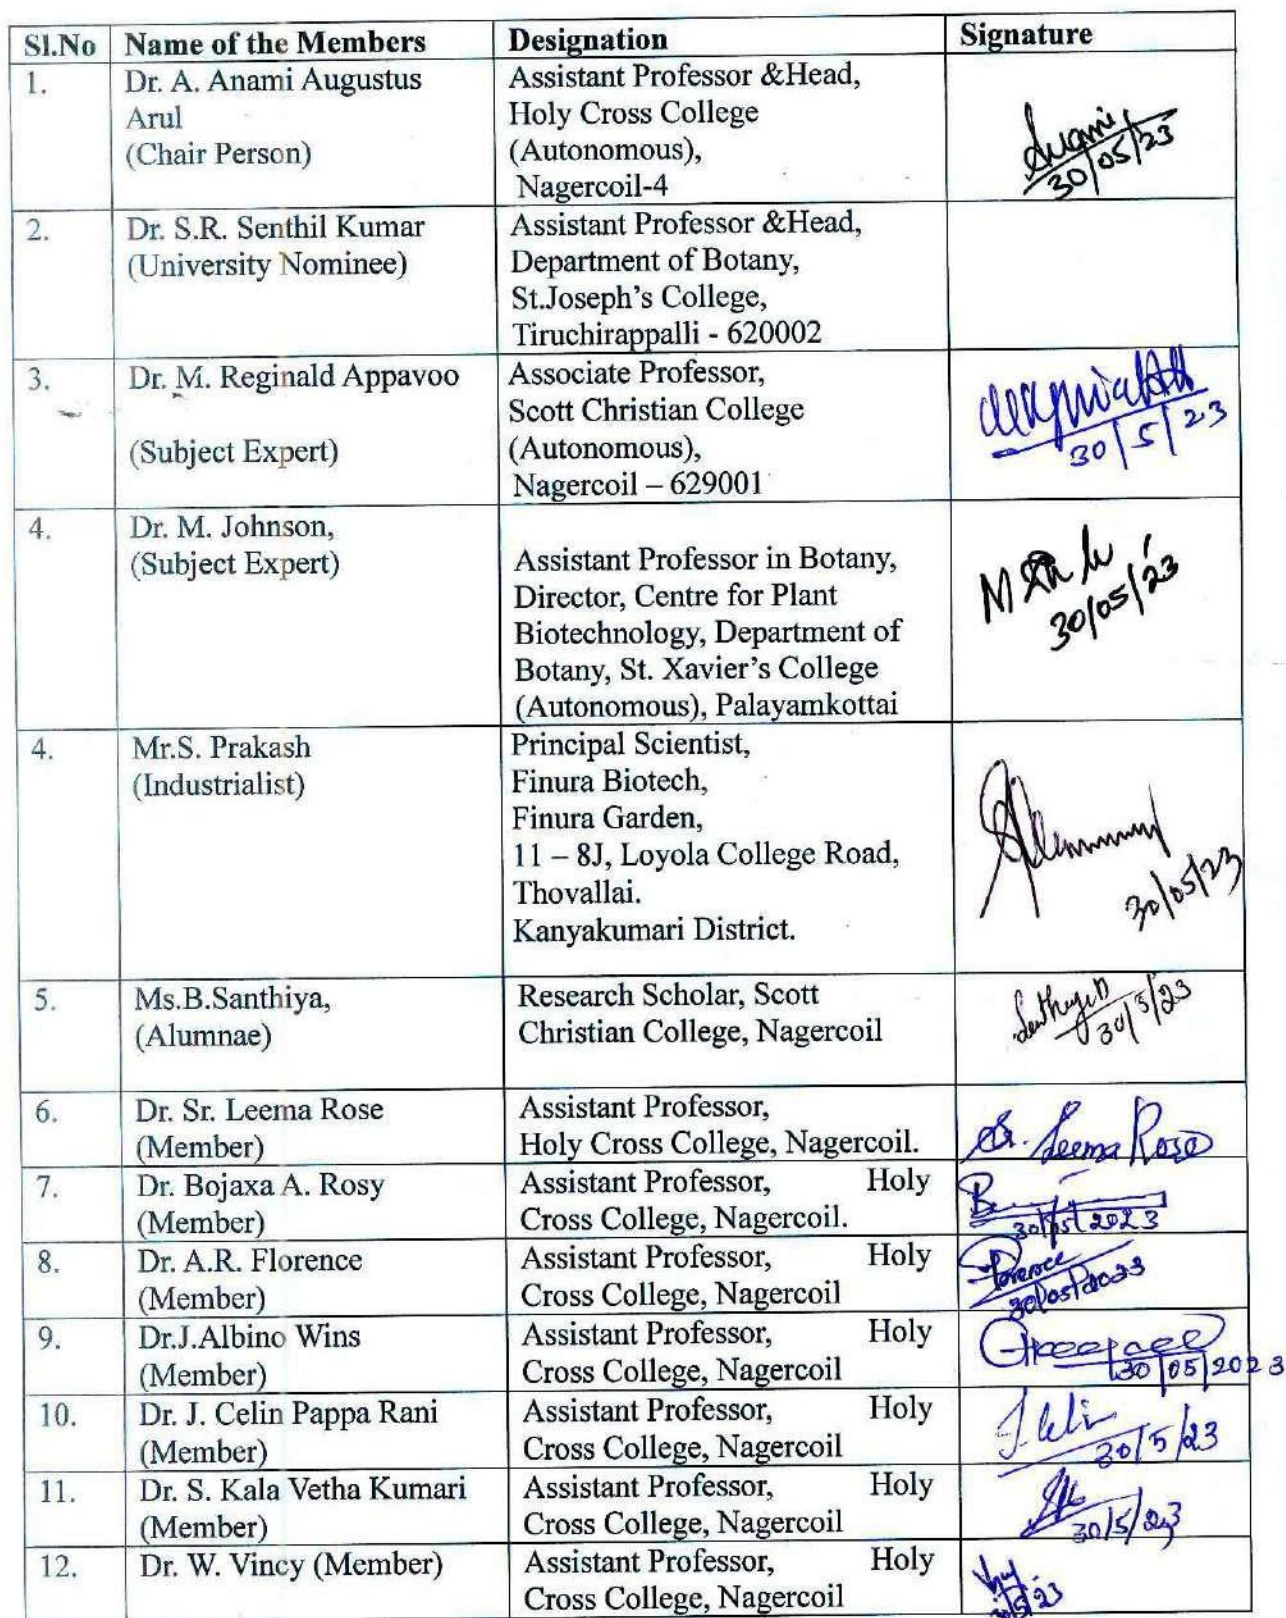 Sl.No Name of the Members Designation Signature
1. Dr. A. Anami Augustus Assistant Professor &Head,
Arul Holy Cross College
(Chair Person) (Autonomous),
Nagercoil-4
30/05/23
2. Dr. S.R. Senthil Kumar Assistant Professor &Head,
(University Nominee) Department of Botany,
St.Joseph’s College,
Tiruchirappalli - 620002
3. Dr. M. Reginald Appavoo Associate Professor,
Scott Christian College
(Subject Expert) (Autonomous),
Nagercoil – 629001
30/5/23
4. Dr. M. Johnson,
(Subject Expert) Assistant Professor in Botany,
Director, Centre for Plant
Biotechnology, Department of
Botany, St. Xavier’s College
(Autonomous), Palayamkottai
30/05/23
4. Mr.S. Prakash Principal Scientist,
(Industrialist) Finura Biotech,
Finura Garden,
11 – 8J, Loyola College Road,
Thovallai.
Kanyakumari District.
30/05/23
5. Ms.B.Santhiya, Research Scholar, Scott
(Alumnae) Christian College, Nagercoil
30/5/23
6. Dr. Sr. Leema Rose Assistant Professor,
(Member) Holy Cross College, Nagercoil.
Sr. Leema Rose
7. Dr. Bojaxa A. Rosy Assistant Professor, Holy
(Member) Cross College, Nagercoil.
30/05/2023
8. Dr. A.R. Florence Assistant Professor, Holy
(Member) Cross College, Nagercoil
Florence
30/05/2023
9. Dr.J.Albino Wins Assistant Professor, Holy
(Member) Cross College, Nagercoil
30/05/2023
10. Dr. J. Celin Pappa Rani Assistant Professor, Holy
(Member) Cross College, Nagercoil
30/5/23
11. Dr. S. Kala Vetha Kumari Assistant Professor, Holy
(Member) Cross College, Nagercoil
30/5/23
12. Dr. W. Vincy (Member) Assistant Professor, Holy
Cross College, Nagercoil